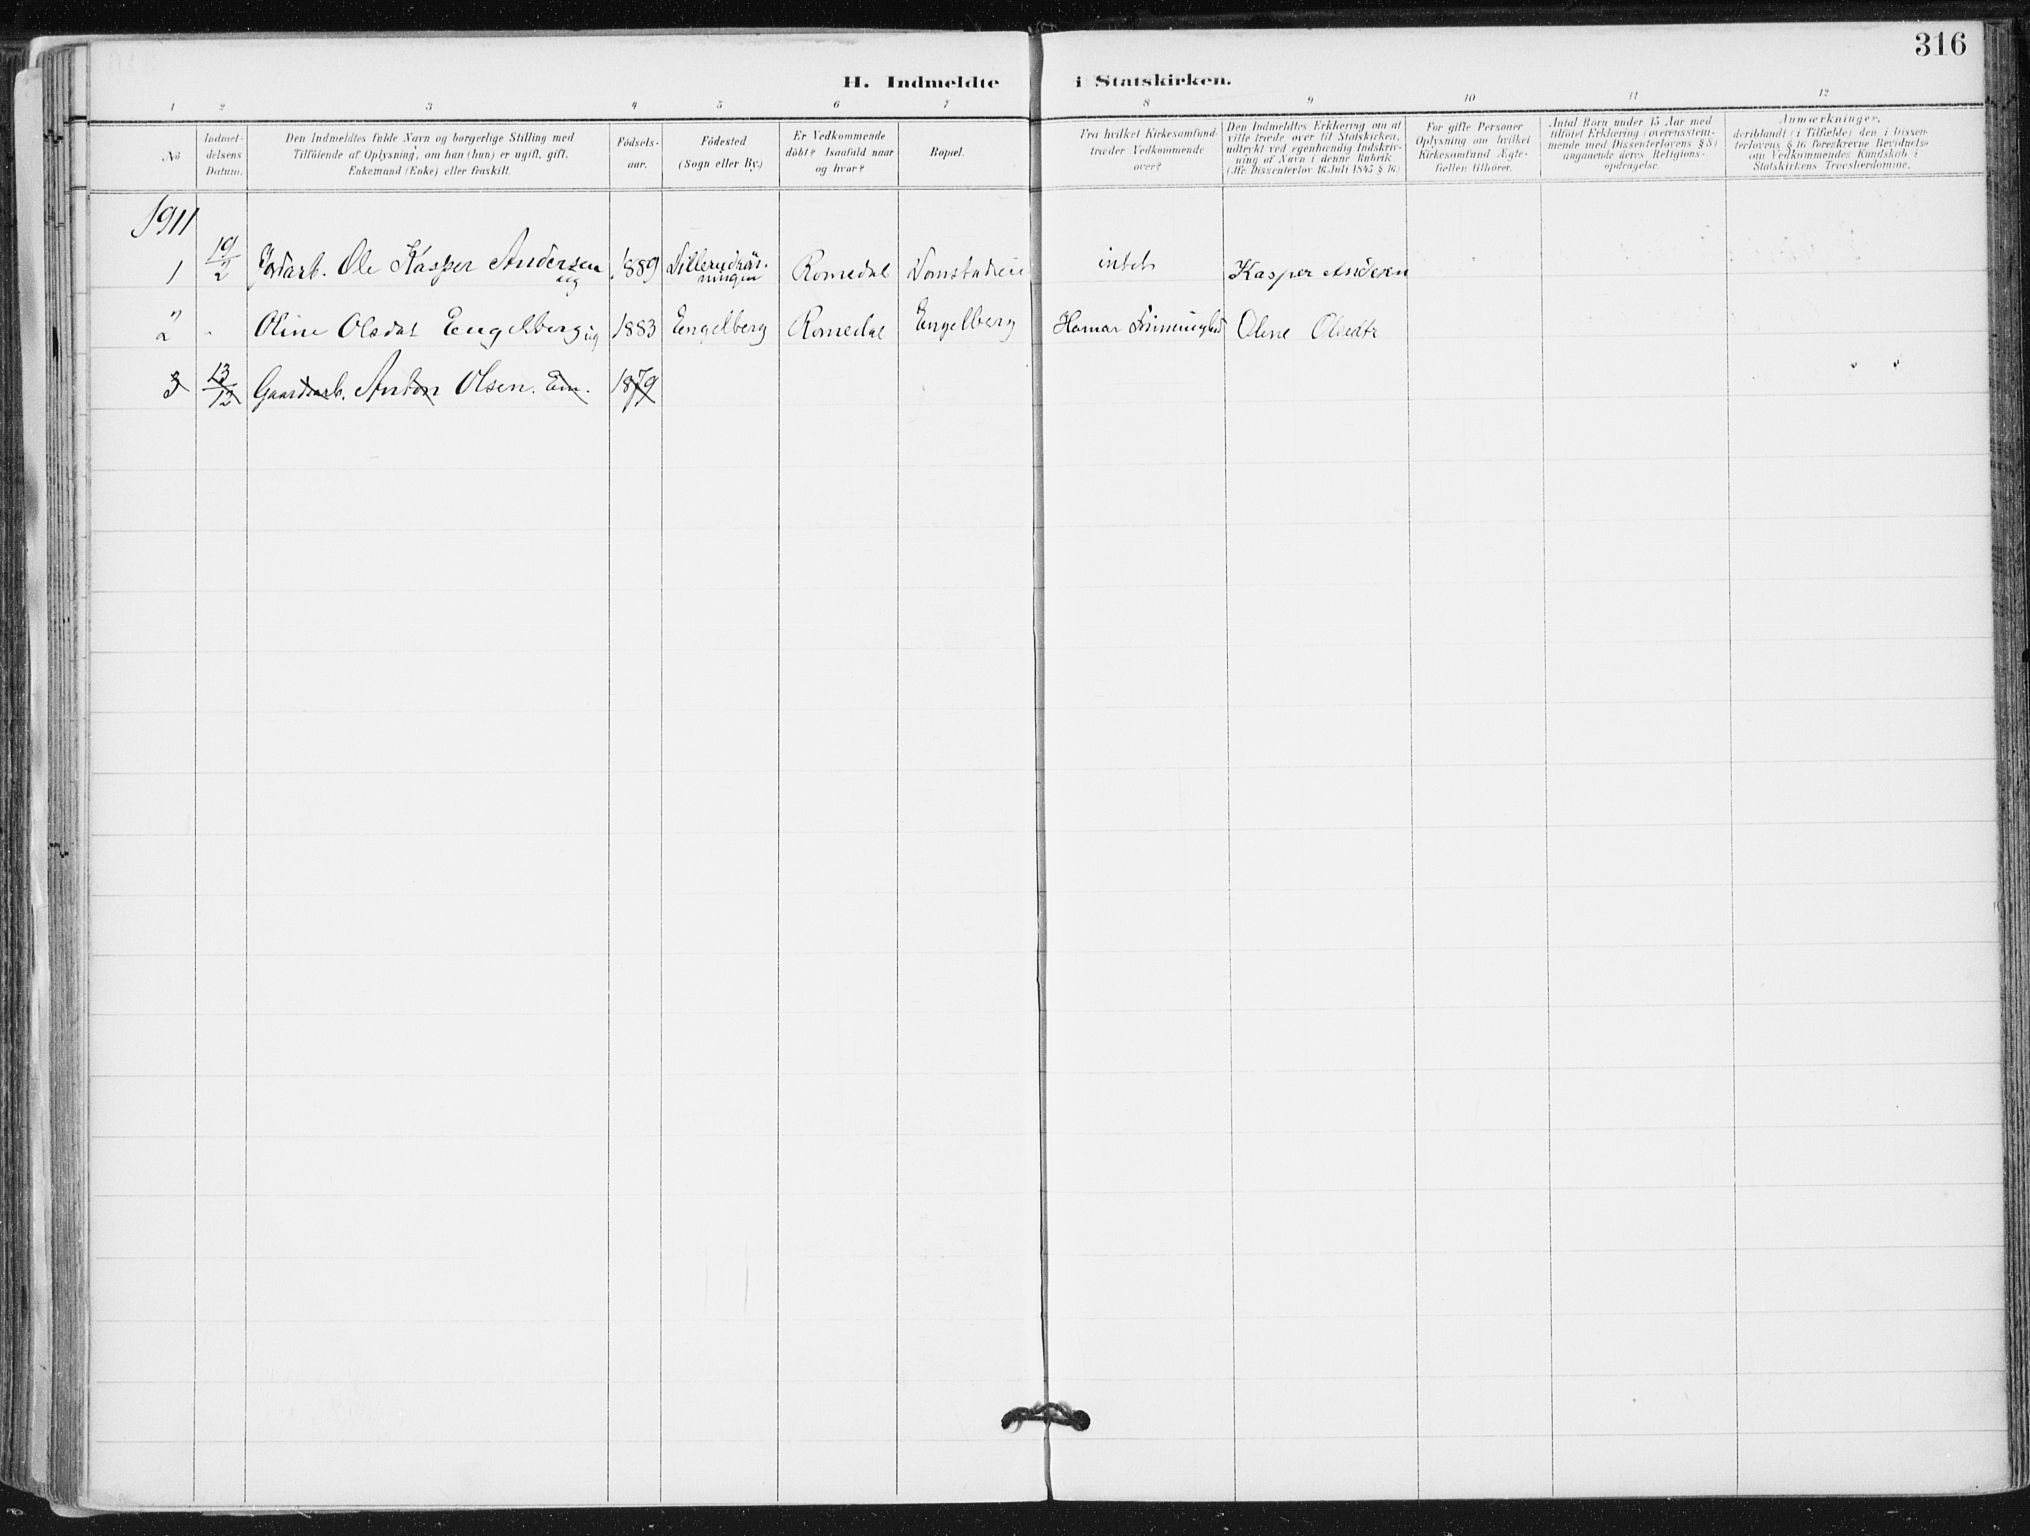 316
H. Indmeldte i Statskirken.
1 2 3 4 5 6 7 8 9 10 11 12
No
Indmel-
delsens
Datum.
Den Indmeldtes fulde Navn og borgerlige Stilling med
Tilföiende af Oplysning, om han (hun) er ugift, gift,
Enkemand (Enke) eller fraskilt.
Födsels-
aar.
Födested
(Sogn eller By.)
Er Vedkommende
döbt? Isaafald naar
og hvor?
Bopæl.
Fra hvilket Kirkesamfund
træder Vedkommende
over?
Den Indmeldtes Erklæring om at
ville træde over til Statskirken,
udtrykt ved egenhændig Indskriv-
ning af Navn i denne Rubrik
(Jfr. Dissenterlov 16 Juli 1845 § 16.)
For gifte Personer
Oplysning om hvilket
Kirkesamfund Ægte-
fællen tilhörer.
Antal Börn under 15 Aar med
tilföiet Erklæring (overensstem-
mende med Dissenterlovens § 8)
angaaende deres Religions-
opdragelse.
Anmærkninger,
deriblandt (i Tilfælde) den i Dissen-
terlovens § 16 foreskrevne Bevidnelse
om Vedkommendes Kundskab i
Statskirkens Troeslærdomme.
1911
1 19/2 Jordarb. Ole Kasper Andersen ug 1889 Romedal intet Kasper Andersen
2 " Oline Olsdat Engelberg ug 1883 Engelberg Romedal Engelberg Hamar Frimenighed Oline
3 13/12 Gaardarb. Anton Olsen. Em. 1879